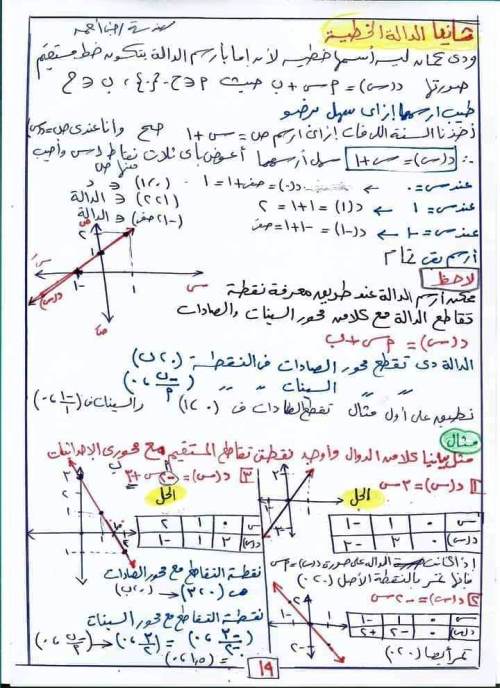 ثانيا الدالة الخطية
ودى عشان ليه أسمها خطية لأن إما بأرسم الدالة بتكون خط مستقيم
صورتها د(س) = ٢س + ب حيث ٢ ∈ ح - {٠} ، ب ∈ ح
طيب أرسمها إزاى سهل برضو
أخدنا السنة اللى فات إزاى أرسم ص = س + ١ صح وأنا عندى ص = د(س)
∴ د(س) = س + ١ سهل أرسمها أعوض بأى ثلاث نقاط لـ س وأجيب
منها ص
عند س = ٠ ← د(٠) = صفر + ١ = ١ (١،٠) ∈ د
عند س = ١ ← د(١) = ١ + ١ = ٢ (٢،١) ∈ الدالة
عند س = -١ ← د(-١) = -١ + ١ = صفر (-١، صفر) ∈ الدالة
أرسم بقى
لاحظ
ممكن أرسم الدالة عند طريق معرفة نقطة
تقاطع الدالة مع كلا من محور السينات والصادات
د(س) = ٢س + ب
الدالة دى تقطع محور الصادات فى النقطة (٠، ب)
السينات (-ب/٢ ، ٠)
تطبيق على أول مثال تقطع الصادات فى (١،٠) والسينات فى (-١/١ ، ٠)
مثال
مثل بيانيا كلا من الدوال وأوجد نقطتى تقاطع المستقيم مع محورى الإحداثيات
١ د(س) = ٣س
٣ د(س) = -٢س + ٣
الحل
الحل
س ٠ ١ -١
د(س) ٠ ٣ -٣
س ٠ ١ ٢
د(س) ٣ ١ -١
إذا كانت الدالة على صورة د(س) = ٢س
فإنها تمر بالنقطة الأصل (٠،٠)
٢ د(س) = -٢س
س ٠ ١ -١
د(س) ٠ -٢ +٢
تمر أيضا (٠،٠)
نقطة التقاطع مع محور الصادات
هى (٣،٠) ← (٠، ب)
نقطة التقاطع مع محور السينات
(-٣/-٢ ، ٠) = (٣/٢ ، ٠) ← (-ب/٢ ، ٠)
= (١,٥ ، ٠)
١٩